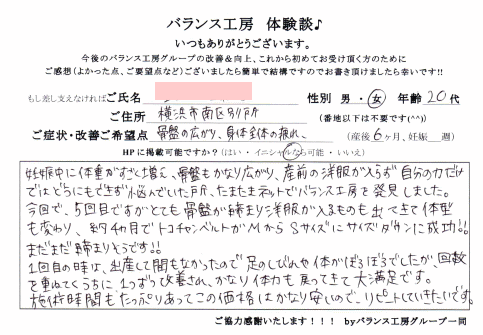 バランス工房 体験談♪
いつもありがとうございます。
今後のバランス工房グループの改善&向上、これから初めてお受け頂く方のために
ご感想(よかった点、ご要望点など)ございましたら簡単で結構ですのでお書き頂けましたら幸いです!!
もし差し支えなければご氏名 性別 男・女 年齢 20代
ご住所 横浜市南区別所 (番地以下は不要です(^^))
ご症状・改善ご希望点 骨盤の広がり、身体全体の疲れ、 (産後6ヶ月、妊娠 週)
HPに掲載可能ですか?(はい・イニシャルなら可能・いいえ)
妊娠中に体重がすごく増え、骨盤もかなり広がり、産前の洋服が入らず自分の力だけ
ではどうにもできず悩んでいた所、たまたまネットでバランス工房を発見しました。
今回で、5回目ですがとても骨盤が締まり洋服が入るものも出てきて体型
も変わり、約4ヶ月でトコチャンベルトがMからSサイズにサイズダウンに成功!!
まだまだ締まりそうです!!
1回目の時は、出産して間もなかったので足のしびれや体がぼろぼろでしたが、回数
を重ねてくうちに、1つずつ改善され、かなり体力も戻ってきて大満足です。
施術時間もたっぷりあってこの価格はかなり安いので、リピートしていきたいです。
ご協力感謝いたします!!! byバランス工房グループ一同